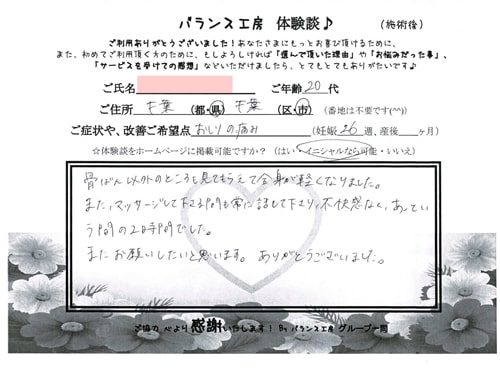 バランス工房 体験談♪ (施術後)
ご利用ありがとうございました!あなたさまにもっとお喜び頂けるために、
また、初めてご利用頂く方のために、もしよろしければ「選んで頂いた理由」や「お悩みだった事」、
「サービスを受けての感想」などいただけましたら、とてもとてもありがたいです♪
ご氏名 ご年齢 20 代
ご住所 千葉 (都・県) 千葉 (区・市) (番地は不要です(^^))
ご症状や、改善ご希望点 おしりの痛み (妊娠 26 週、産後 ヶ月)
☆体験談をホームページに掲載可能ですか? (はい・イニシャルなら可能・いいえ)
骨ばん以外のところも見てもらえて全身が軽くなりました。
また、マッサージして下さる間も常に話して下さり、不快感なく、あってい
う間の2時間でした。
またお願いしたいと思います。ありがとうございました。
ご協力 心より感謝いたします! By バランス工房 グループ一同